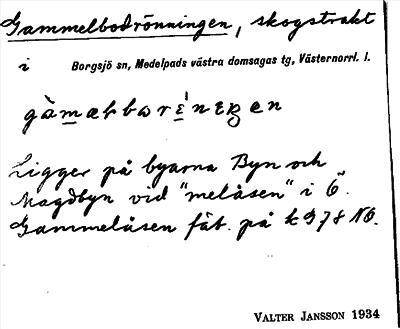 Gammelbodrönningen, skogstrakt
i Borgsjö sn, Medelpads västra domsagas tg, Västernorrl. l.
Ligger på byarna Byn och
Magdbyn vid "melåsen" i Ö.
Gammelåsen fäb. på k 978 NO.
VALTER JANSSON 1934